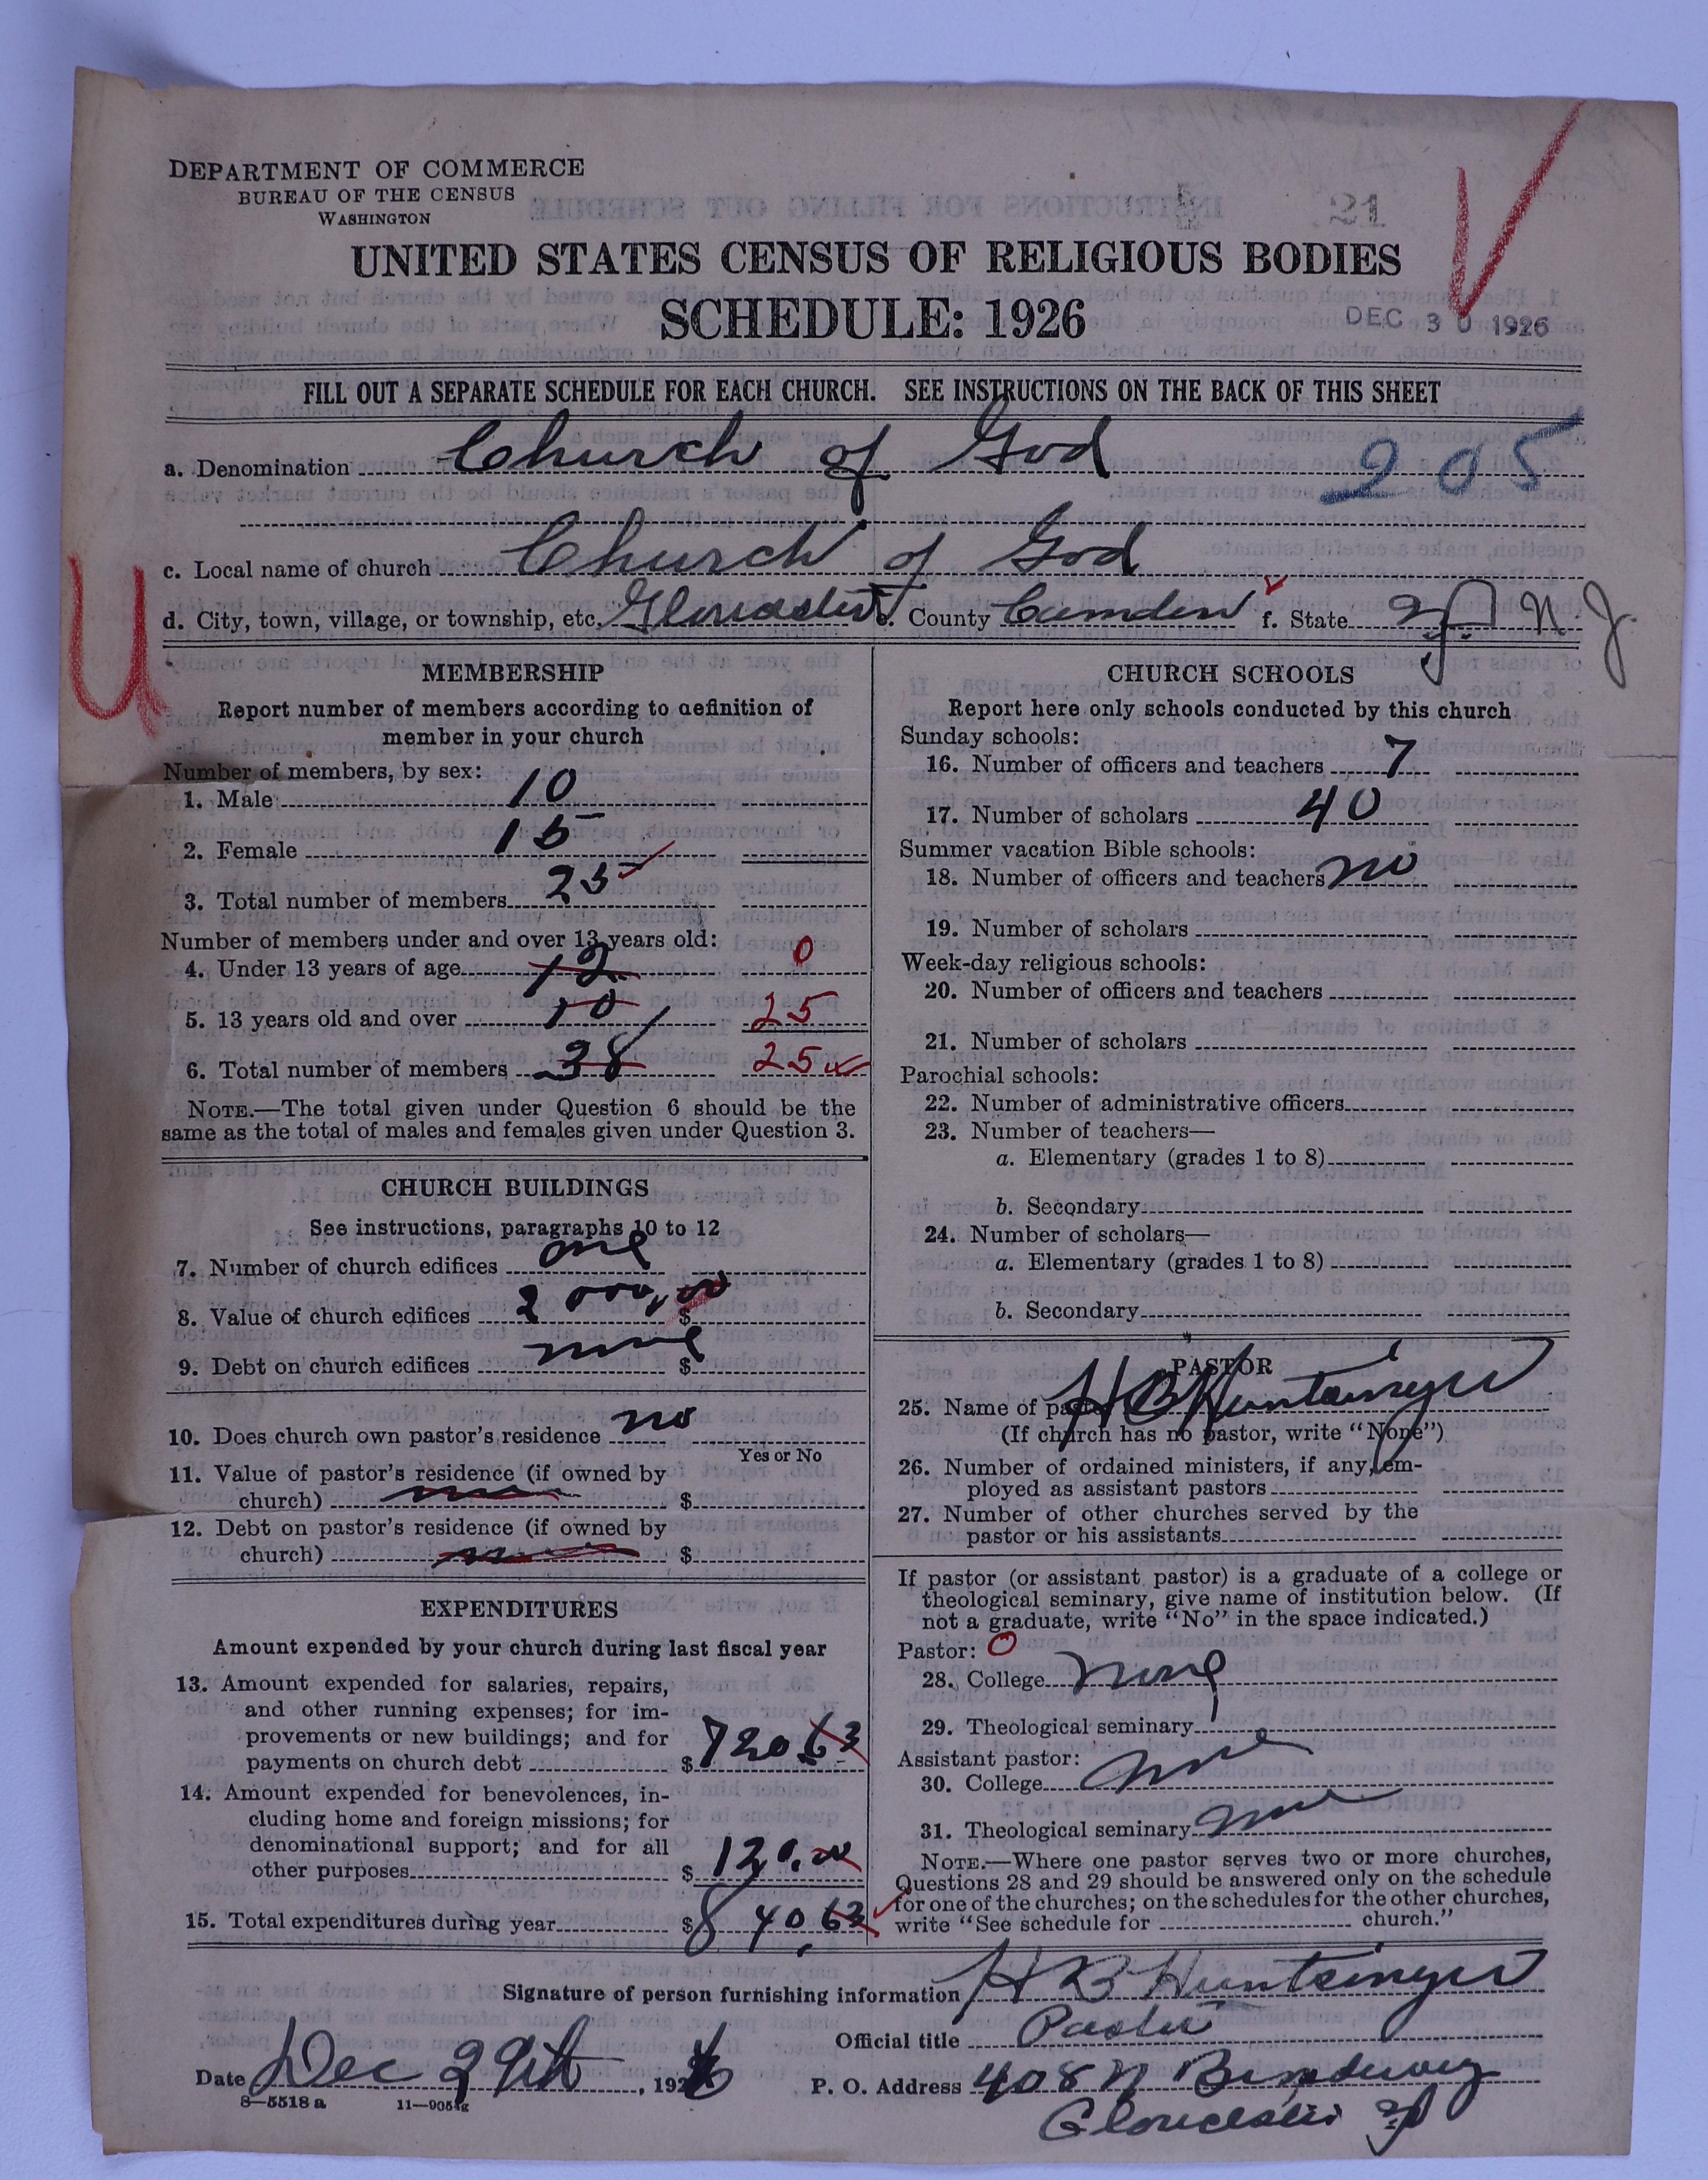 DEPARTMENT OF COMMERCE
BUREAU OF THE CENSUS
WASHINGTON
21
UNITED STATES CENSUS OF RELIGIOUS BODIES
SCHEDULE: 1926
DEC 30 1926
FILL OUT A SEPARATE SCHEDULE FOR EACH CHURCH. SEE INSTRUCTIONS ON THE BACK OF THIS SHEET
a. Denomination Church of God 205
c. Local name of church Church of God
d. City, town, village, or township, etc. Gloucester e. County Camden f. State NJ N. J.
U
MEMBERSHIP
Report number of members according to definition of
member in your church
Number of members, by sex:
1. Male 10
2. Female 15
3. Total number of members 25
Number of members under and over 13 years old:
4. Under 13 years of age 12 0
5. 13 years old and over 10 25
6. Total number of members 38 25
NOTE.—The total given under Question 6 should be the
same as the total of males and females given under Question 3.
CHURCH BUILDINGS
See instructions, paragraphs 10 to 12
7. Number of church edifices one
8. Value of church edifices $ 2000.00
9. Debt on church edifices none $
10. Does church own pastor's residence no
Yes or No
11. Value of pastor's residence (if owned by
church) $
12. Debt on pastor's residence (if owned by
church) $
EXPENDITURES
Amount expended by your church during last fiscal year
13. Amount expended for salaries, repairs,
and other running expenses; for im-
provements or new buildings; and for
payments on church debt $ 720.63
14. Amount expended for benevolences, in-
cluding home and foreign missions; for
denominational support; and for all
other purposes $ 120.00
15. Total expenditures during year $ 840.63
CHURCH SCHOOLS
Report here only schools conducted by this church
Sunday schools:
16. Number of officers and teachers 7
17. Number of scholars 40
Summer vacation Bible schools:
18. Number of officers and teachers no
19. Number of scholars
Week-day religious schools:
20. Number of officers and teachers
21. Number of scholars
Parochial schools:
22. Number of administrative officers
23. Number of teachers—
a. Elementary (grades 1 to 8)
b. Secondary
24. Number of scholars—
a. Elementary (grades 1 to 8)
b. Secondary
PASTOR
25. Name of pastor H B Huntsinger
(If church has no pastor, write "None")
26. Number of ordained ministers, if any, em-
ployed as assistant pastors
27. Number of other churches served by the
pastor or his assistants
If pastor (or assistant pastor) is a graduate of a college or
theological seminary, give name of institution below. (If
not a graduate, write "No" in the space indicated.)
Pastor: 0
28. College none
29. Theological seminary
Assistant pastor:
30. College none
31. Theological seminary none
NOTE.—Where one pastor serves two or more churches,
Questions 28 and 29 should be answered only on the schedule
for one of the churches; on the schedules for the other churches,
write "See schedule for church."
Signature of person furnishing information H B Huntsinger
Official title Pastor
Date Dec 29th, 1926
P. O. Address 408 N Broadway
Gloucester NJ
8—5518 a 11—9054g